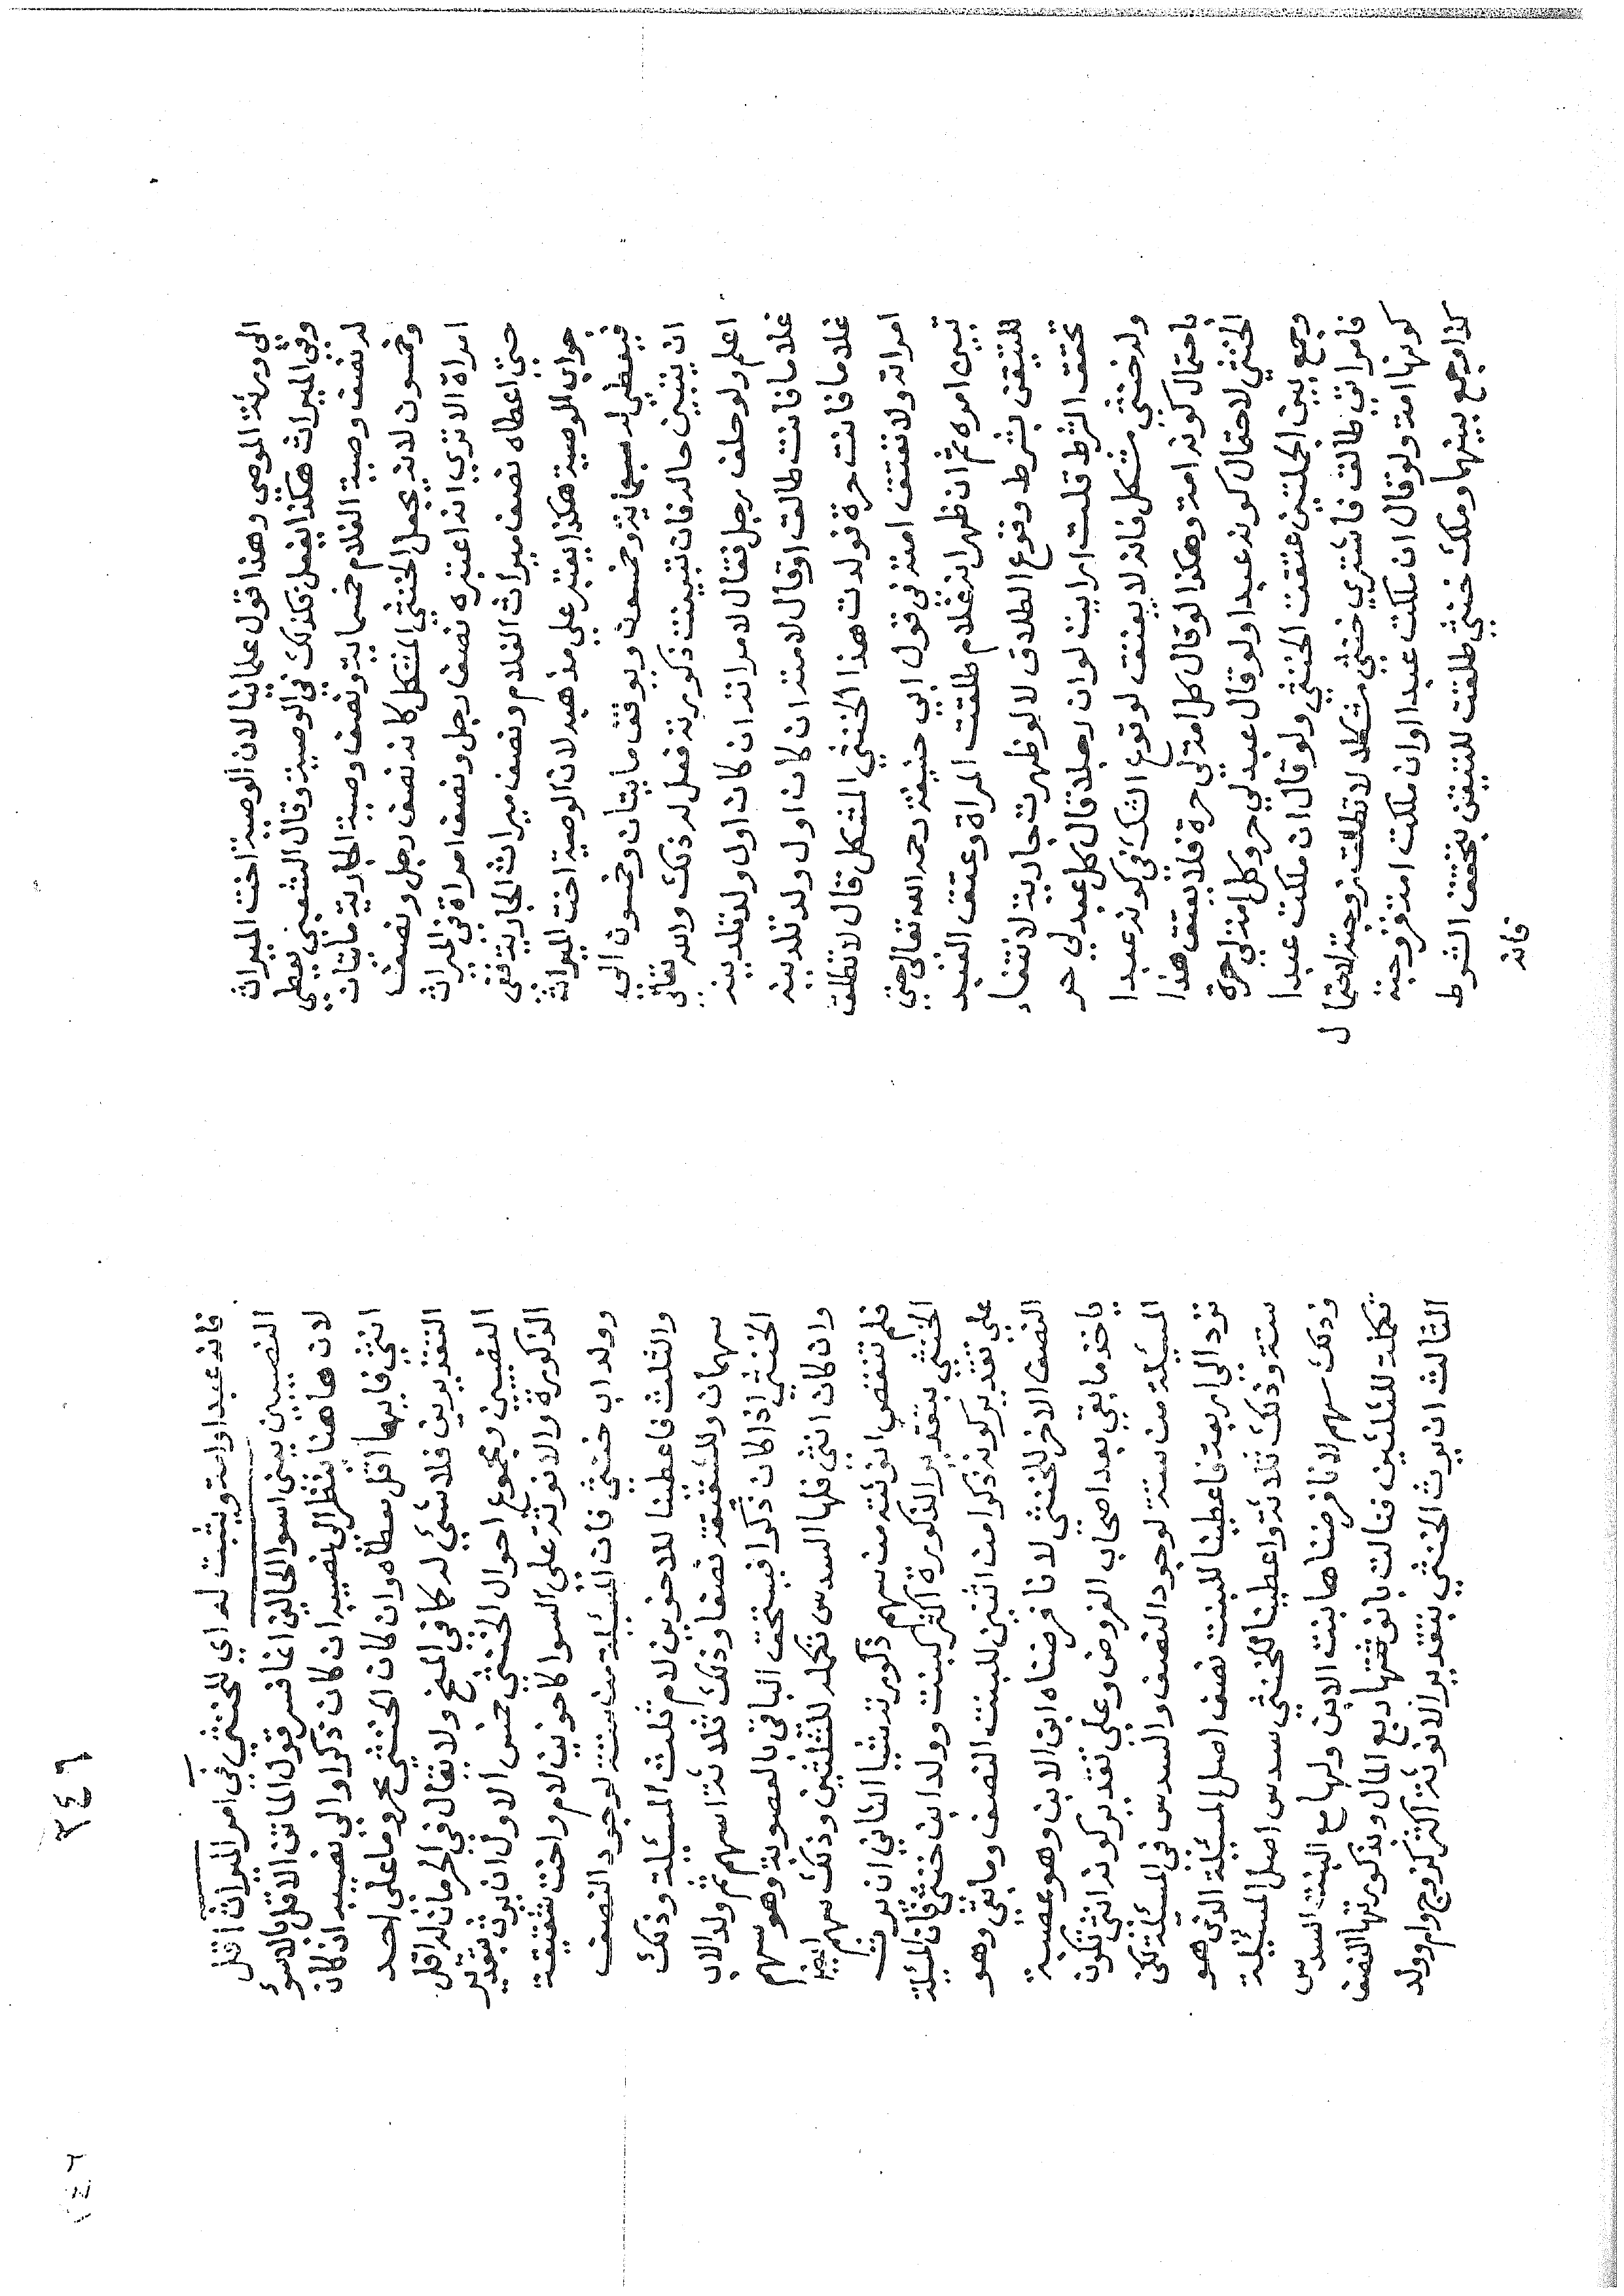 الى ورثة الموصى وهذا قول علمائنا لان الوصية اخت الميراث
وفي الميراث هكذا يفعل فكذلك في الوصية وقال الشعبي يعطى
له نصف وصية الغلام خمسماية ونصف وصية الجارية مايتان
وخمسون لانه يجعل الخنثي المشكل كانه نصف رجل ونصف
امراة الا تري انه اعتبره نصف رجل ونصف امراة في الميراث
حتى اعطاه نصف ميراث الغلام ونصف ميراث الجارية ففى
جواب الوصية هكذا يعتبر علي مذهبه لان الوصية اخت الميراث
فيعطي له سبعماية وخمسون ويوقف مايتان وخمسون الى
ان يتبين حاله فان تبينت ذكوريته فعل له ذلك والله تعالى
اعلم ولو حلف رجل فقال لامراته ان كان اول ولد تلدينه
غلاما فانت طالق او قال لامته ان كان اول ولد تلدينه
غلاما فانت حرة فولدت هذا الخنثي المشكل قال لا تطلق
امراته ولا تعتق امته في قول ابي حنيفة رحمه الله تعالى حتى
تبين امره ثم ان ظهر انه غلام طلقت المراة وعتق العبد
للتيقن بشرط وقوع الطلاق لا لو ظهرت جارية لانتفاء
تحقق الشرط قلت ارايت لو ان رجلا قال كل عبد لي حر
وله خنثي مشكل فانه لا يعتق لوقوع الشك في كونه عبدا
باحتمال كونه امة وهكذا لو قال كل امة لي حرة فلا يعتق هذا
الخنثي لاحتمال كونه عبدا ولو قال عبد لي حر وكل امة لي حرة
وجمع بين الجملتين عتقت الخنثي ولو قال ان ملكت عبدا
فامراتي طالق فاشتري خنثي مشكلا لا تطلق زوجته لاحتمال
كونها امة ولو قال ان ملكت عبدا او ان ملكت امة فزوجية
كذا وجمع بينهما وملك خنثي طلقت للتيقن بتحقق الشرط
فانه
٣٤٦
فانه عبدا او امة ويثبت له اي للخنثي في امر الميراث اقل
النصيبين يعني اسوا الحالين انما فسر قول الماتن الاقل بالاسوء
لان هاهنا ينظر الى نصيبه ان كان ذكرا والى نصيبه ان كان
انثي فايهما اقل يعطاه وان كان الخنثي محروما على احد
التقديرين فلا شيء له كما في المنح ولا يقال في الحرمان انه اقل
النصيبين ومجموع احوال الخنثي خمس الاول ان يرث بتقدير
الذكورة والانوثة على السوا كاخوين لام واخت شقيقة
وولد اب خنثي فان المسئلة من ستة لوجود النصف
والثلث فاعطينا للاخوين لام ثلث المسئلة وذلك
سهمان وللشقيقة نصفا وذلك ثلاثة اسهم ثم ولد الاب
الخنثي اذا كان ذكرا فيستحق الباقى بالعصوبة وهو سهم
وان كان انثي فلها السدس تكملة للثلثين وذلك سهم ايضا
فلم تنقص انوثته من سهم ذكوريته شيا الثاني ان يرث
الخنثي بتقدير الذكورة اكثر كبنت وولد ابن خنثي فان المسئلة
علي تقدير كونه ذكرا من اثنين للبنت النصف وما بقي وهو
النصف الاخر للخنثي لانا فرضناه ابن الابن وهو عصبة
ياخذ ما بقي بعد اصحاب الفروض وعلى تقدير كونه انثى تكون
المسئلة من ستة لوجود النصف والسدس في المسئلة لكن
ترد الى اربعة فاعطينا للبنت نصف اصل المسئلة الذي هو
ستة وذلك ثلاثة واعطينا للخنثي سدس اصل المسئلة
وذلك سهم لانا فرضناها بنت الابن ولها مع البنت السدس
تكملة للثلثين فنالت بانوثتها ربع المال وبذكوريتها النصف
الثالث ان يرث الخنثي بتقدير الانوثة اكثر كزوج وام وولد